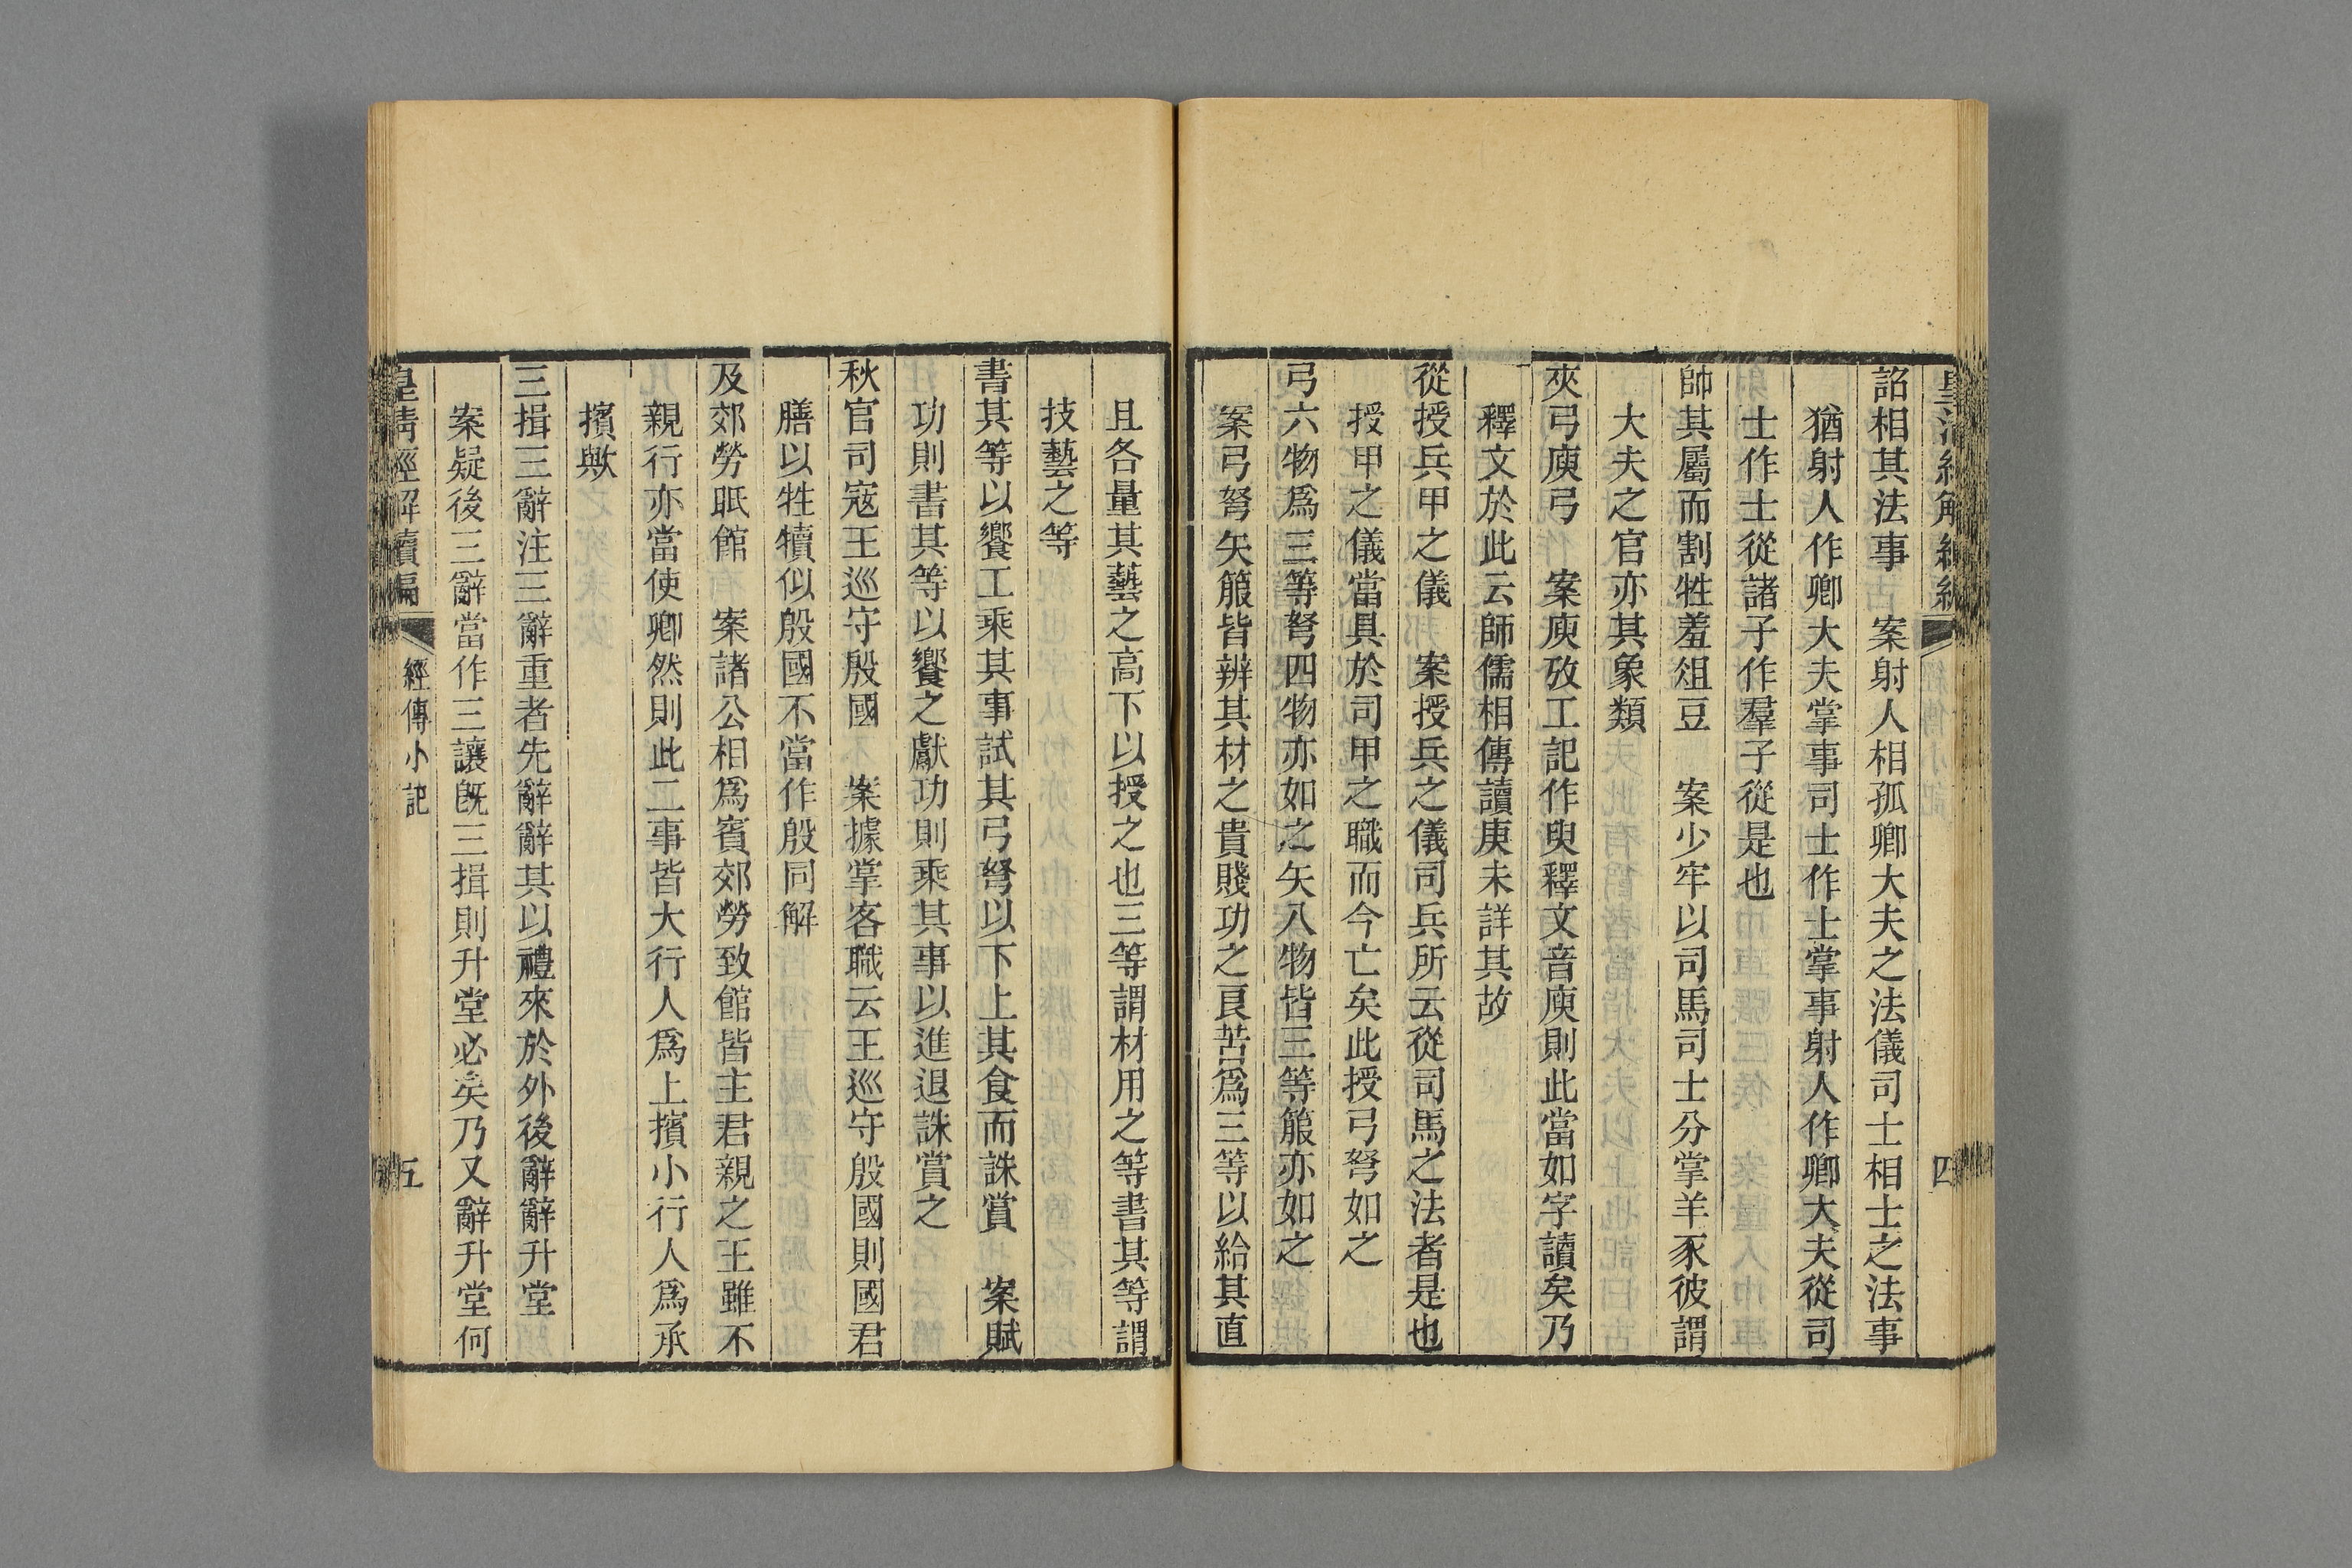 詔相其法事　案射人相孤卿大夫之法儀司士相士之法事
猶射人作卿大夫掌事司士作士掌事射人作卿大夫從司
士作士從諸子作羣子從是也
帥其屬而割牲羞俎豆　案少牢以司馬司士分掌羊豕彼謂
大夫之官亦其象類
夾弓庾弓　案庾攷工記作臾釋文音庾則此當如字讀矣乃
釋文於此云師儒相傳讀庚未詳其故
從授兵甲之儀　案授兵之儀司兵所云從司馬之法者是也
授甲之儀當具於司甲之職而今亡矣此授弓弩如之
弓六物爲三等弩四物亦如之矢八物皆三等箙亦如之
案弓弩矢箙皆辨其材之貴賤功之良苦爲三等以給其直
且各量其藝之高下以授之也三等謂材用之等書其等謂
技藝之等
書其等以饗工乘其事試其弓弩以下上其食而誅賞　案賦
功則書其等以饗之獻功則乘其事以進退誅賞之
秋官司寇王巡守殷國　案據掌客職云王巡守殷國則國君
膳以牲犢似殷國不當作殷同解
及郊勞眂館　案諸公相爲賓郊勞致館皆主君親之王雖不
親行亦當使卿然則此二事皆大行人爲上擯小行人爲承
擯歟
三揖三辭注三辭重者先辭辭其以禮來於外後辭辭升堂
案疑後三辭當作三讓旣三揖則升堂必矣乃又辭升堂何
皇清經解續編
經傳小記
五